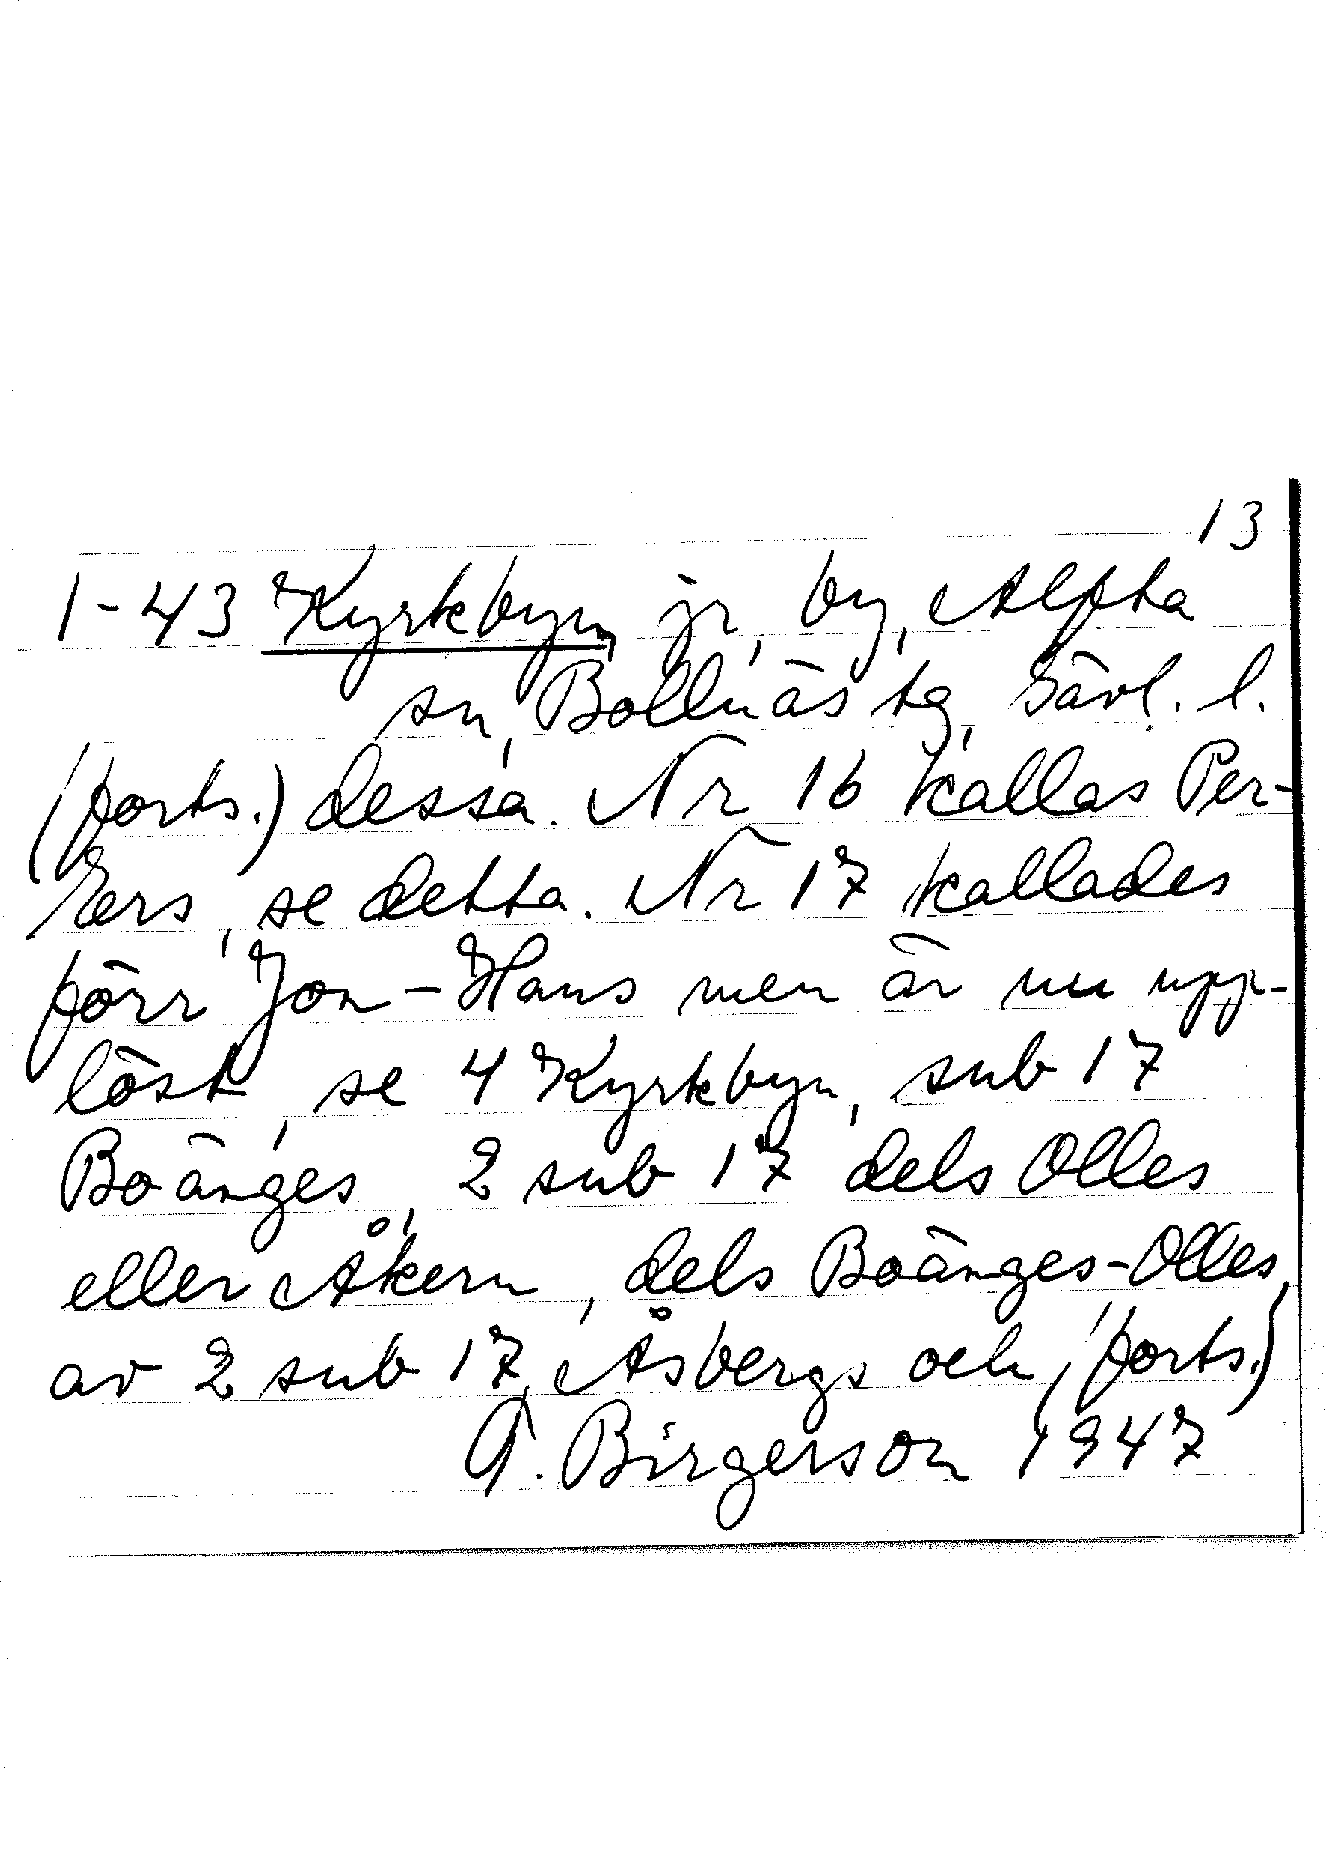 13
1-43 Kyrkbyn, jr, by, Alfta
sn, Bollnäs tg, Gävl. l.
(forts.) dessa. Nr 16 kallas Per-
Ers, se detta. Nr 17 kallades
förr Jon-Hans men är nu upp-
löst, se 4 Kyrkbyn, sub 17
Boänges, 2 sub 17 dels Olles
eller Åkern, dels Boänges-Olles,
av 2 sub 17, Åsbergs och (forts.)
G. Birgerson 1947